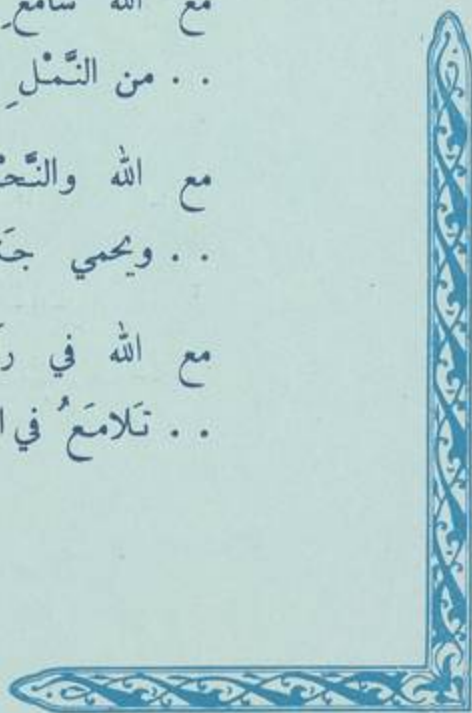 مع الله سامعِ
. . من النَّمْلِ
مع الله والنَّحْ
. . ويحمي جَـ
مع الله في رَ
. . تَلامَعُ في ا